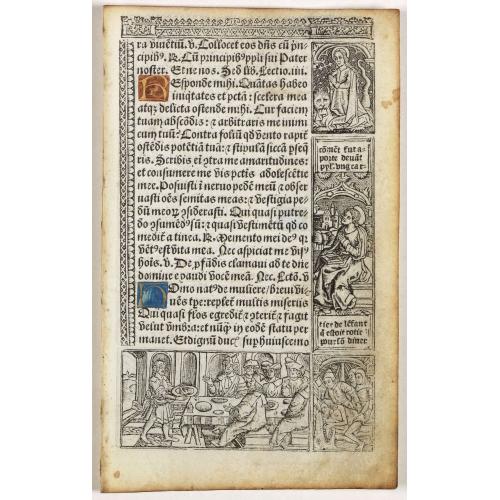 ra viuētiū. v. Collocet eos dn̄s cū p̄n-
cipib⁹. R. Cū principib⁹ ppli sui Pater
noster. Et ne nos. Sed lib. Lectio. iiii.
Esponde mihi. Quātas habeo
iniqtates et pctā: scelera mea
atq; delicta ostende mihi. Cur faciem
tuam abscōdis: ⁊ arbitraris me inimi
cum tuū? Contra foliū qd vento rapit̄
ostēdis potētiā tuā: ⁊ stipulā siccā pseq̄
ris. Scribis eī ɔtra me amaritudines:
et consumere me vis pctīs adolescētie
mee. Posuisti ī neruo pedē meū ⁊ obser
uasti oēs semitas meas: ⁊ vestigia pe-
dū meoꝝ ɔsiderasti. Qui quasi putre-
do ɔsumēd⁹ sū: ⁊ quasi vestimētū qd co
medit̄ a tinea. R. Memento mei de⁹ q̄
vēt⁹ est vita mea. Nec aspiciat me vis⁹
hoīs. v. De p̄fūdis clamaui ad te dn̄e
domine exaudi vocē meā. Nec. Lectō. v
Omo nat⁹ de muliere/ breui vi-
uēs tpe: replet̄ multis miseriis
Qui quasi flos egredit̄ ⁊ ɔterit̄ ⁊ fugit
velut vmbra: et nūq̄ in eodē statu per
manet. Et dignū duc⁹ sup huiuscemo
cōmēt fut a-
porte deuāt
vng car-
tier de lēfant
q̄ estoit rotie
pour sō diner